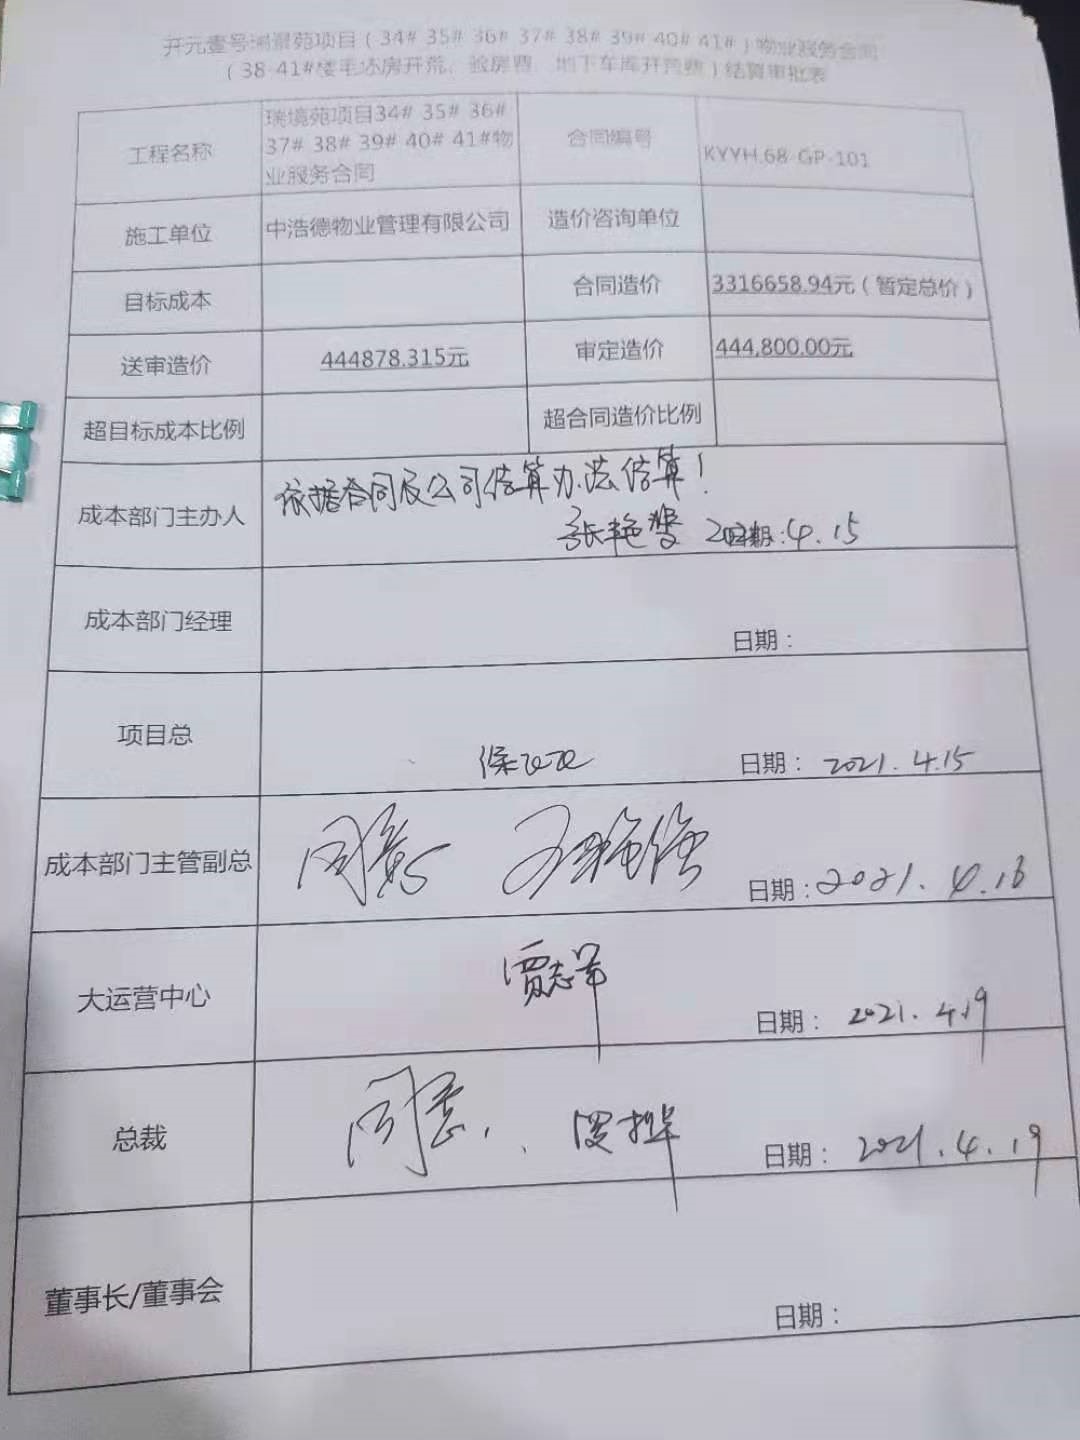 开元壹号瑞景苑项目（34# 35# 36# 37# 38# 39# 40# 41#）物业服务合同
（38-41#楼毛坯房开荒、验房费、地下车库开荒费）结算审批表
工程名称
瑞境苑项目34# 35# 36#
37# 38# 39# 40# 41#物
业服务合同
合同编号
KYYH.68-GP-101
施工单位 中浩德物业管理有限公司 造价咨询单位
目标成本 合同造价 3316658.94元（暂定总价）
送审造价 444878.315元 审定造价 444,800.00元
超目标成本比例 超合同造价比例
成本部门主办人
依据合同及公司结算办法结算！
日期：4.15
成本部门经理
日期：
项目总
日期： 2021.4.15
成本部门主管副总
同意
日期：2021.4.16
大运营中心
日期： 2021.4.19
总裁
同意
日期： 2021.4.19
董事长/董事会
日期：